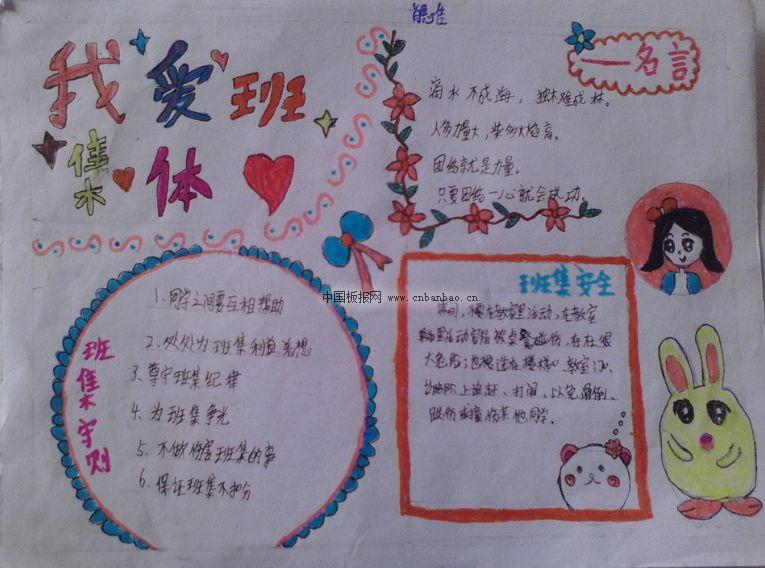 我爱班
集体
一名言
滴水不成海，独木难成林。
人多力量大，柴多火焰高。
团结就是力量。
只要团结一心就会成功。
班集守则
1.同学之间要互相帮助
2.处处为班集利益着想
3.尊守班集纪律
4.为班集争光
5.不做伤害班集的事
6.保证班集不扣分
中国板报网 www.cnbanbao.cn
班集安全
课间，不要在教室里活动，在教室
里活动容易被桌凳碰伤，在在很
大危险；也不要在楼梯口、教室门口、
上追赶、打闹，以免滑倒、
跌伤或撞伤其他同学。